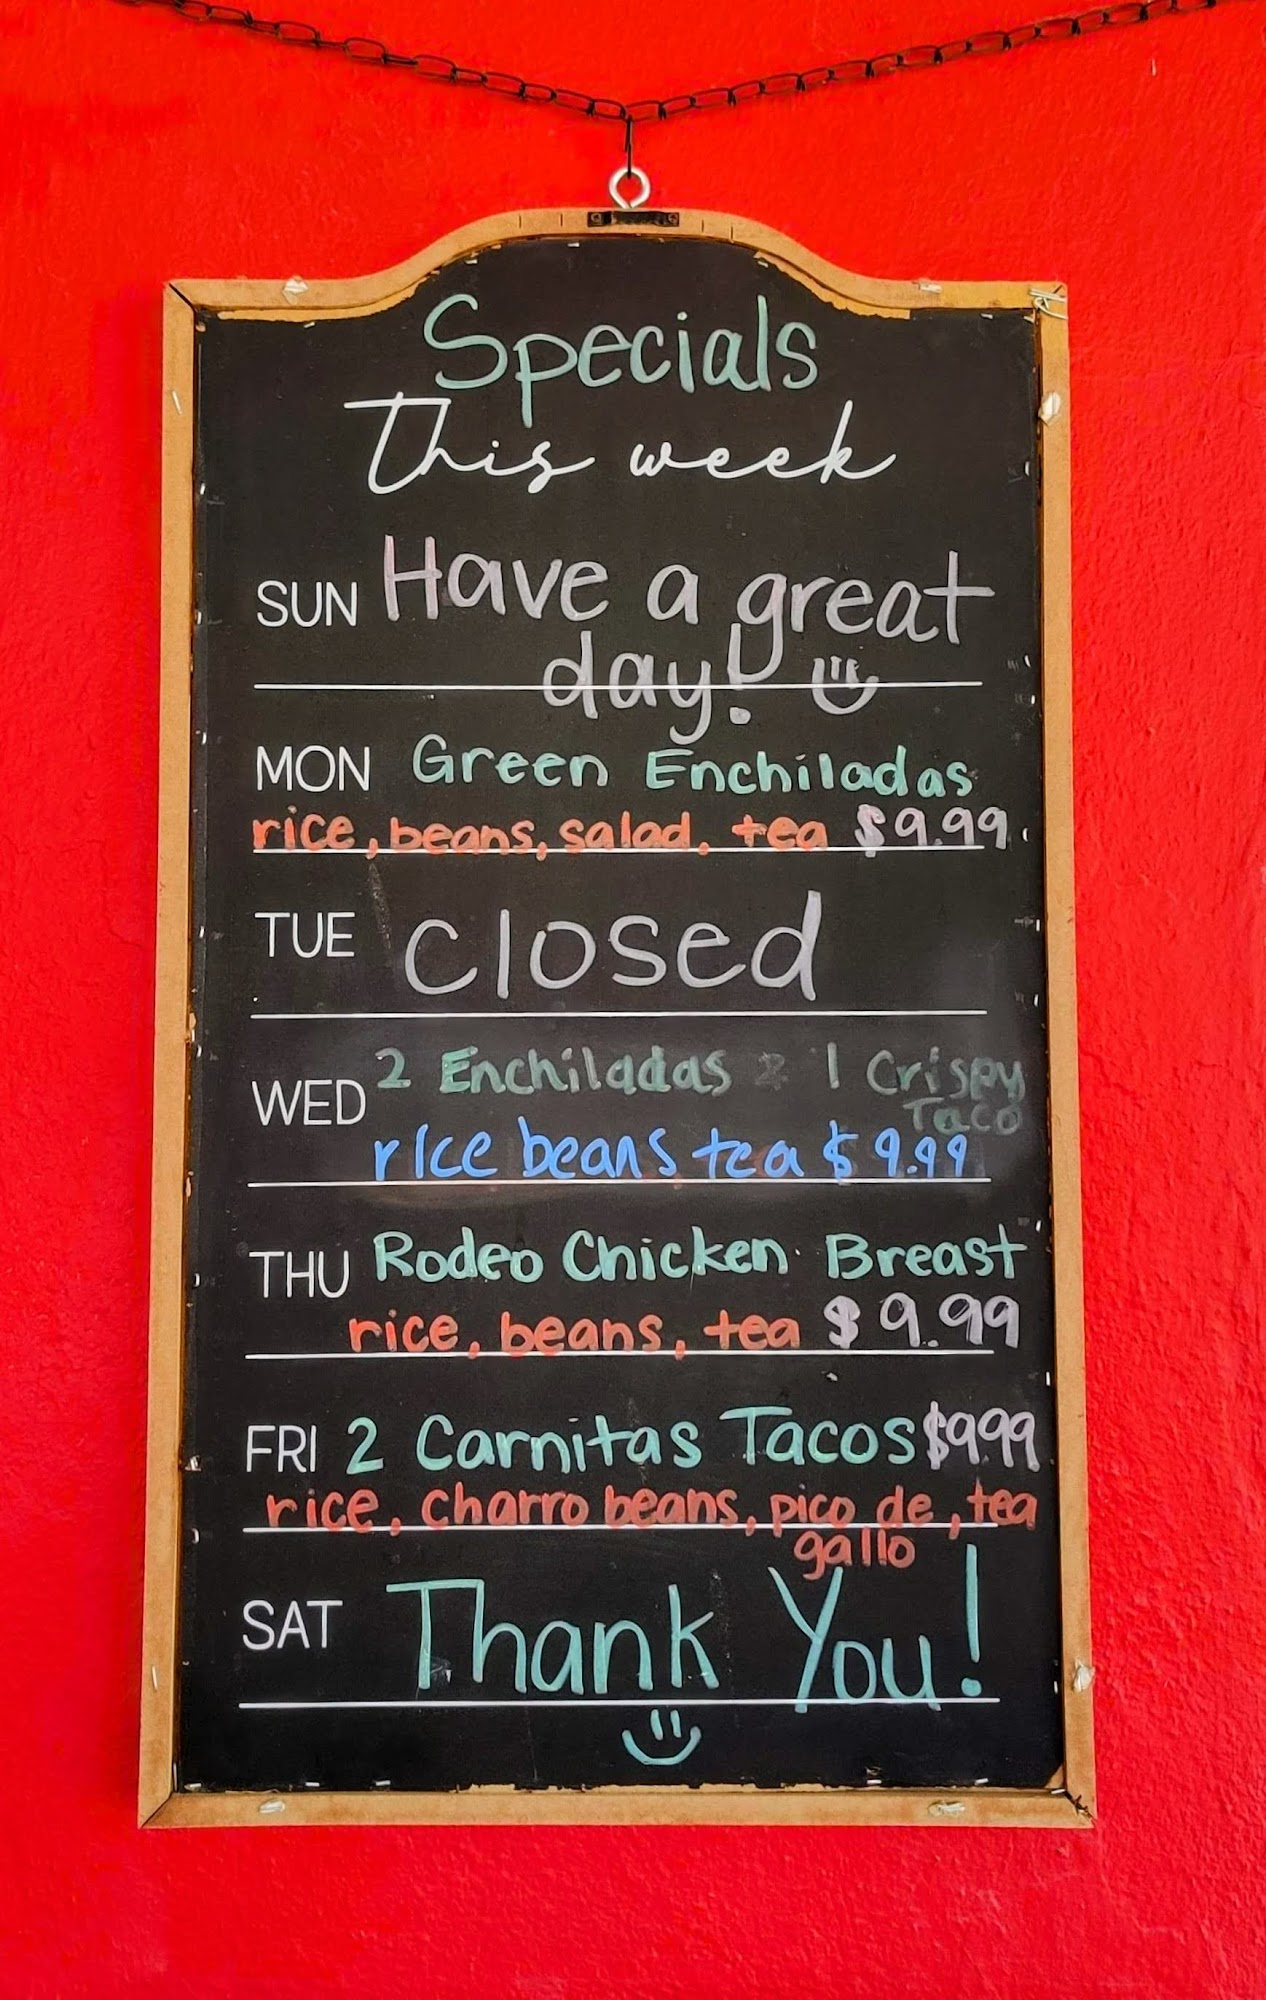 Specials
This week
SUN Have a great
day!
MON Green Enchiladas
rice, beans, salad, tea $9.99
TUE closed
WED 2 Enchiladas & 1 Crispy
Taco
rice beans tea $9.99
THU Rodeo Chicken Breast
rice, beans, tea $9.99
FRI 2 Carnitas Tacos $9.99
rice, charro beans, pico de, tea
gallo
SAT Thank You!